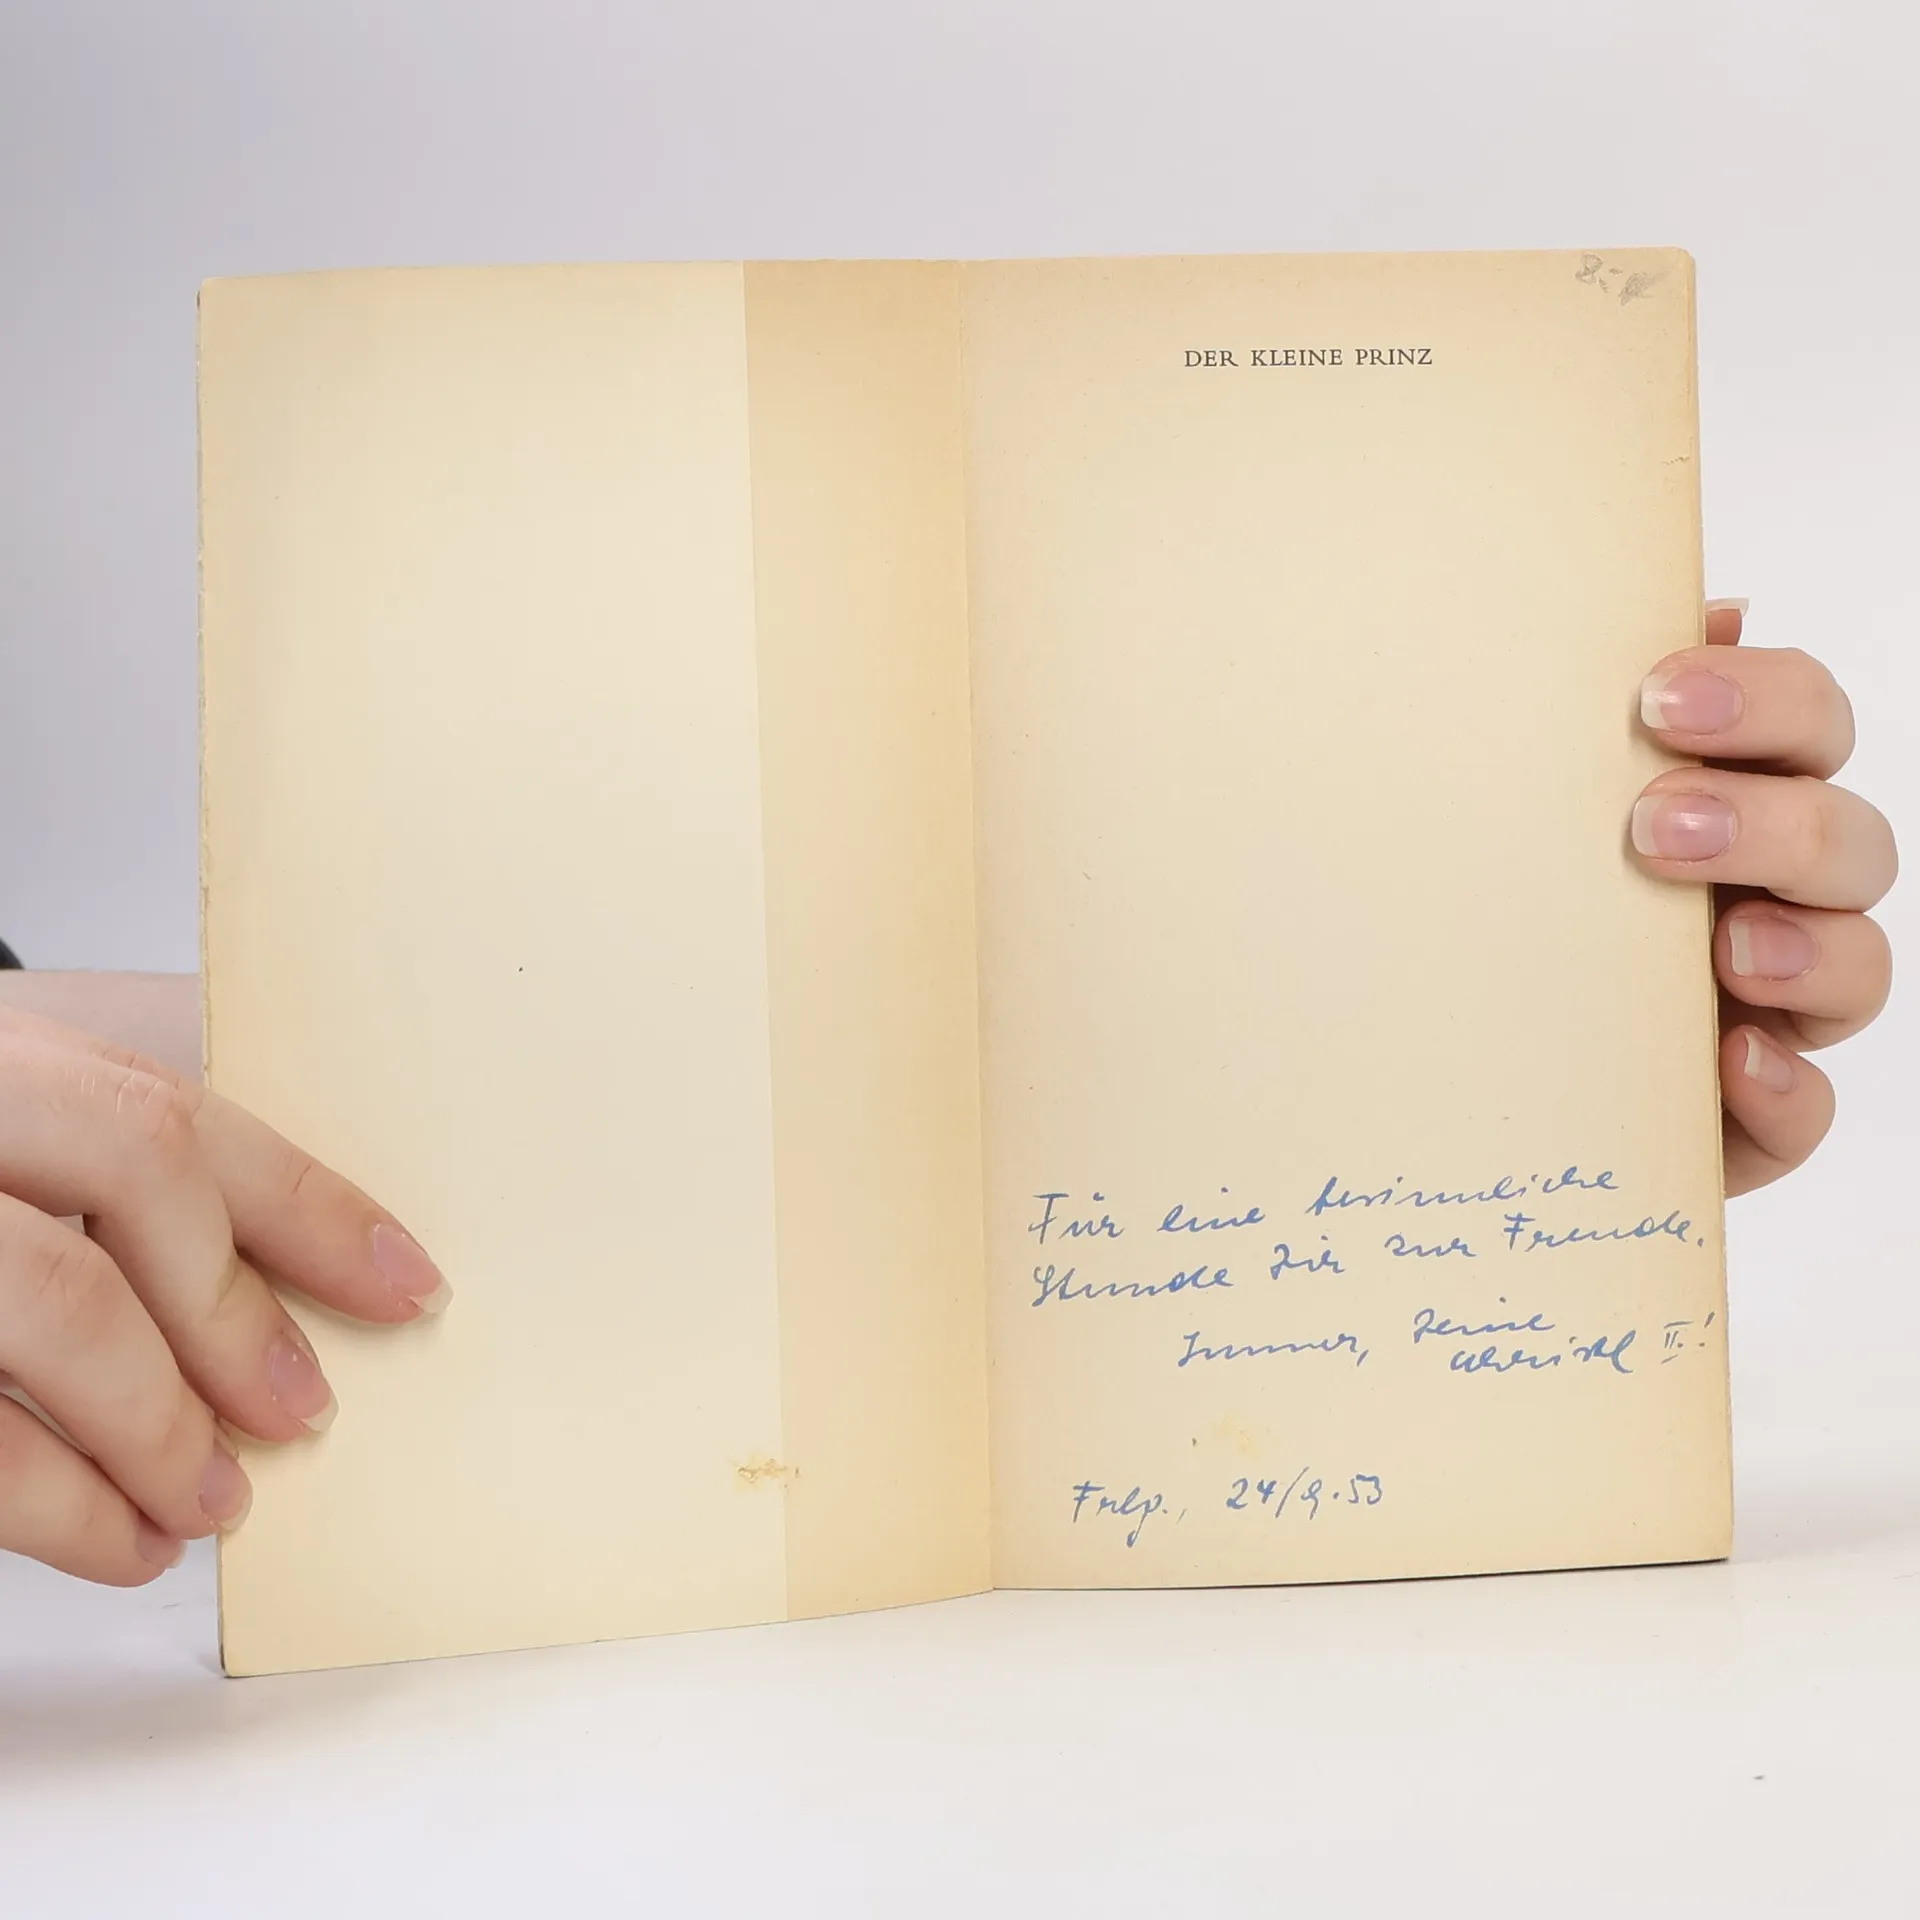 8.-
DER KLEINE PRINZ
Für eine besinnliche
Stunde Dir zur Freude.
Immer, Deine
Christl II.!
Frlg., 24/9.53